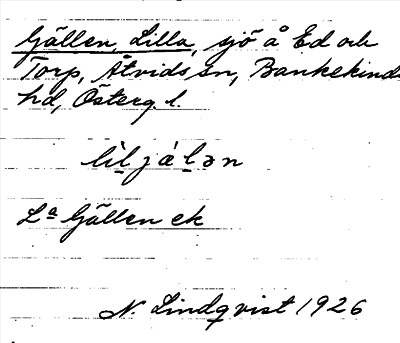 Gällen, Lilla, sjö å Ed och
Torp, Åtvids sn, Bankekinds
hd, Österg. l.
lìljálən
La Gällen ek
N. Lindqvist 1926